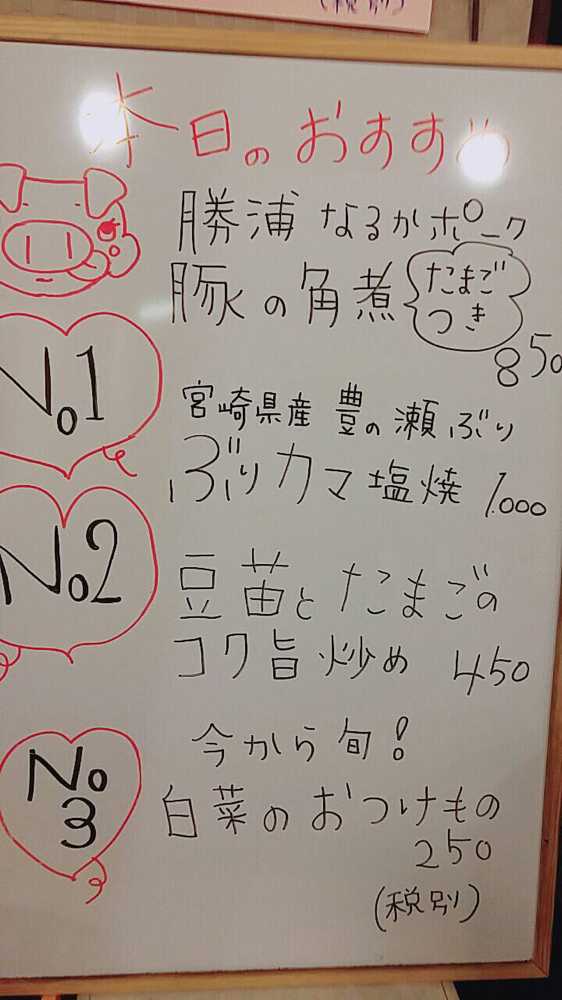 (税別)
本日のおすすめ
勝浦 なるかポーク
豚の角煮
たまご
つき
850
No.1
宮崎県産 豊の瀬ぶり
ぶりカマ塩焼 1.000
No.2
豆苗とたまごの
コク旨炒め 450
今から旬!
No
3
白菜のおつけもの
250
(税別)